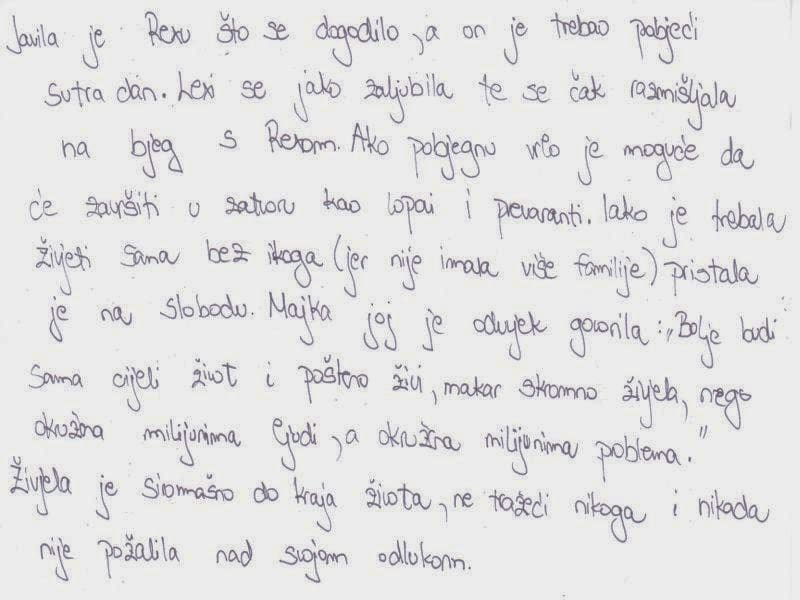 Javila je Rexu što se dogodilo, a on je trebao pobjeći
sutra dan. Lexi se jako zaljubila te se čak razmišljala
na bjeg s Rexom. Ako pobjegnu vrlo je moguće da
će završiti u zatvoru kao lopovi i prevaranti. Iako je trebala
živjeti sama bez ikoga (jer nije imala više familije) pristala
je na slobodu. Majka joj je oduvjek govorila: „Bolje budi
sama cijeli život i pošteno živi, makar skromno živjela, nego
okružna milijunima ljudi, a okružna milijunima problema."
Živjela je siromašno do kraja života, ne tražeći nikoga i nikada
nije požalila nad svojom odlukom.